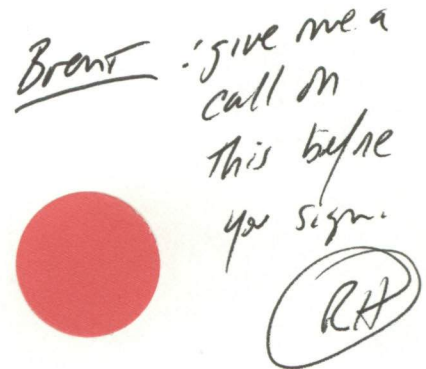 Brent : give me a
call on
this before
you sign.
RH